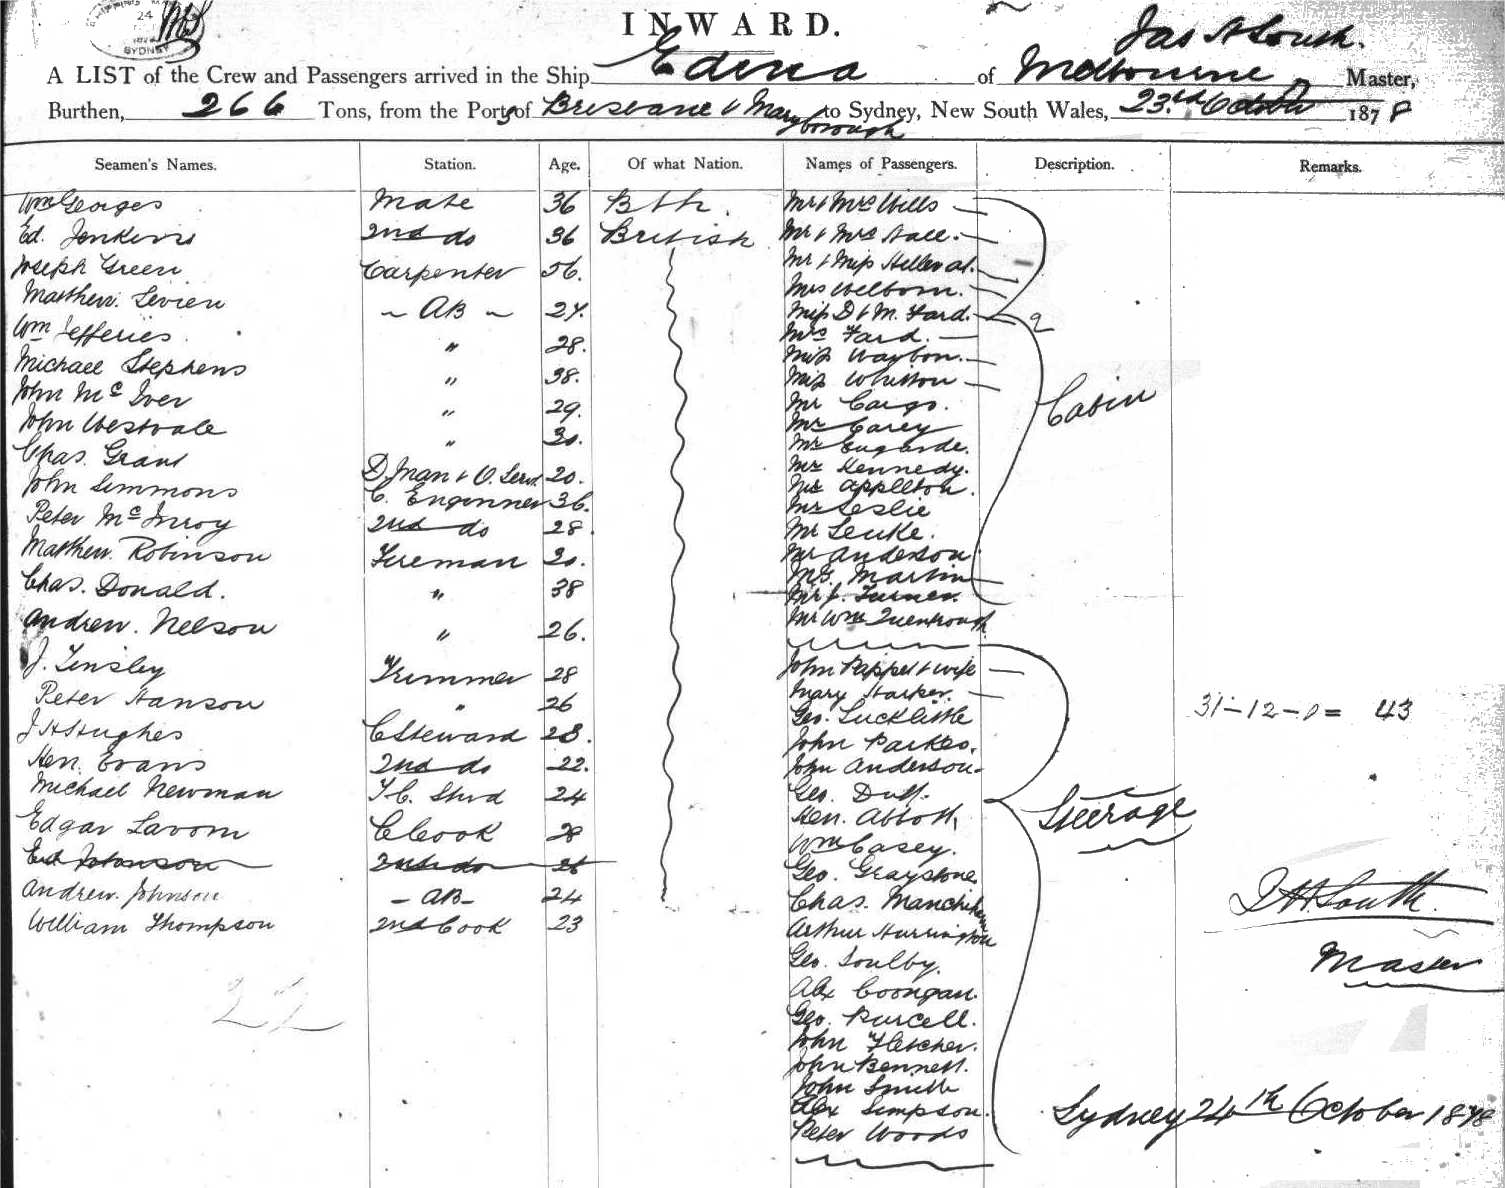 24
SYDNEY
INWARD.
Jas A South.
A LIST of the Crew and Passengers arrived in the Ship Edina of Melbourne Master,
Burthen, 266 Tons, from the Port of Brisbane & Maryborough to Sydney, New South Wales, 23rd October 1878
Seamen's Names. Station. Age. Of what Nation. Names of Passengers. Description. Remarks.
Wm Georges Mate 36 Bth. Mr & Mrs Wills
Ed. Jenkins 2nd do 36 British Mr & Mrs Hall.
Joseph Green Carpenter 56. Mr & Miss
Matthew Levien AB 24. Mrs Welborn.
Miss D & M. Ford. 9
Wm Jefferies " 28. Mrs Ford.
Miss
Michael Stephens " 38. Miss Whitton
John McIver " 29. Mr Cargo. Cabin
John Westvale " 30. Mr Carey
Mr
Chas. Grant D. Man & O. 20. Mr Kennedy.
John Simmons C. Enginner 36. Mr Appleton.
Mr Leslie
Peter McInroy 2nd do 28. Mr Leuke.
Matthew Robinson Fireman 30. Mr Anderson
Mr Martin
Chas. Donald. " 38 Mr J. Turner.
Andrew. Nelson " 26. Mr Wm
J. Tinsley Trimmer 28 John Pappel & wife
Peter Hanson " 26 Mary Harker.
Geo. Lucklittle 31-12-0= 43
J H Hughes C Steward 28. John Parkes.
Hen. Evans 2nd do 22. John Anderson
Michael Newman F.C. Stwd 24 Geo. Duff.
Hen. Abbott. Steerage
Edgar Lavom C Cook 28 Wm Casey.
Ed Johnson 2nd do 26 Geo. Graystone
Andrew. Johnson AB 24 Chas. J H South.
William Thompson 2nd Cook 23 Arthur Harrington
Geo. Soulby. Master
22 Alex Coongan.
Geo. Purcell.
John Fletcher.
John Bennett.
John Smith
Alex Simpson. Sydney 24th October 1878
Peter Woods